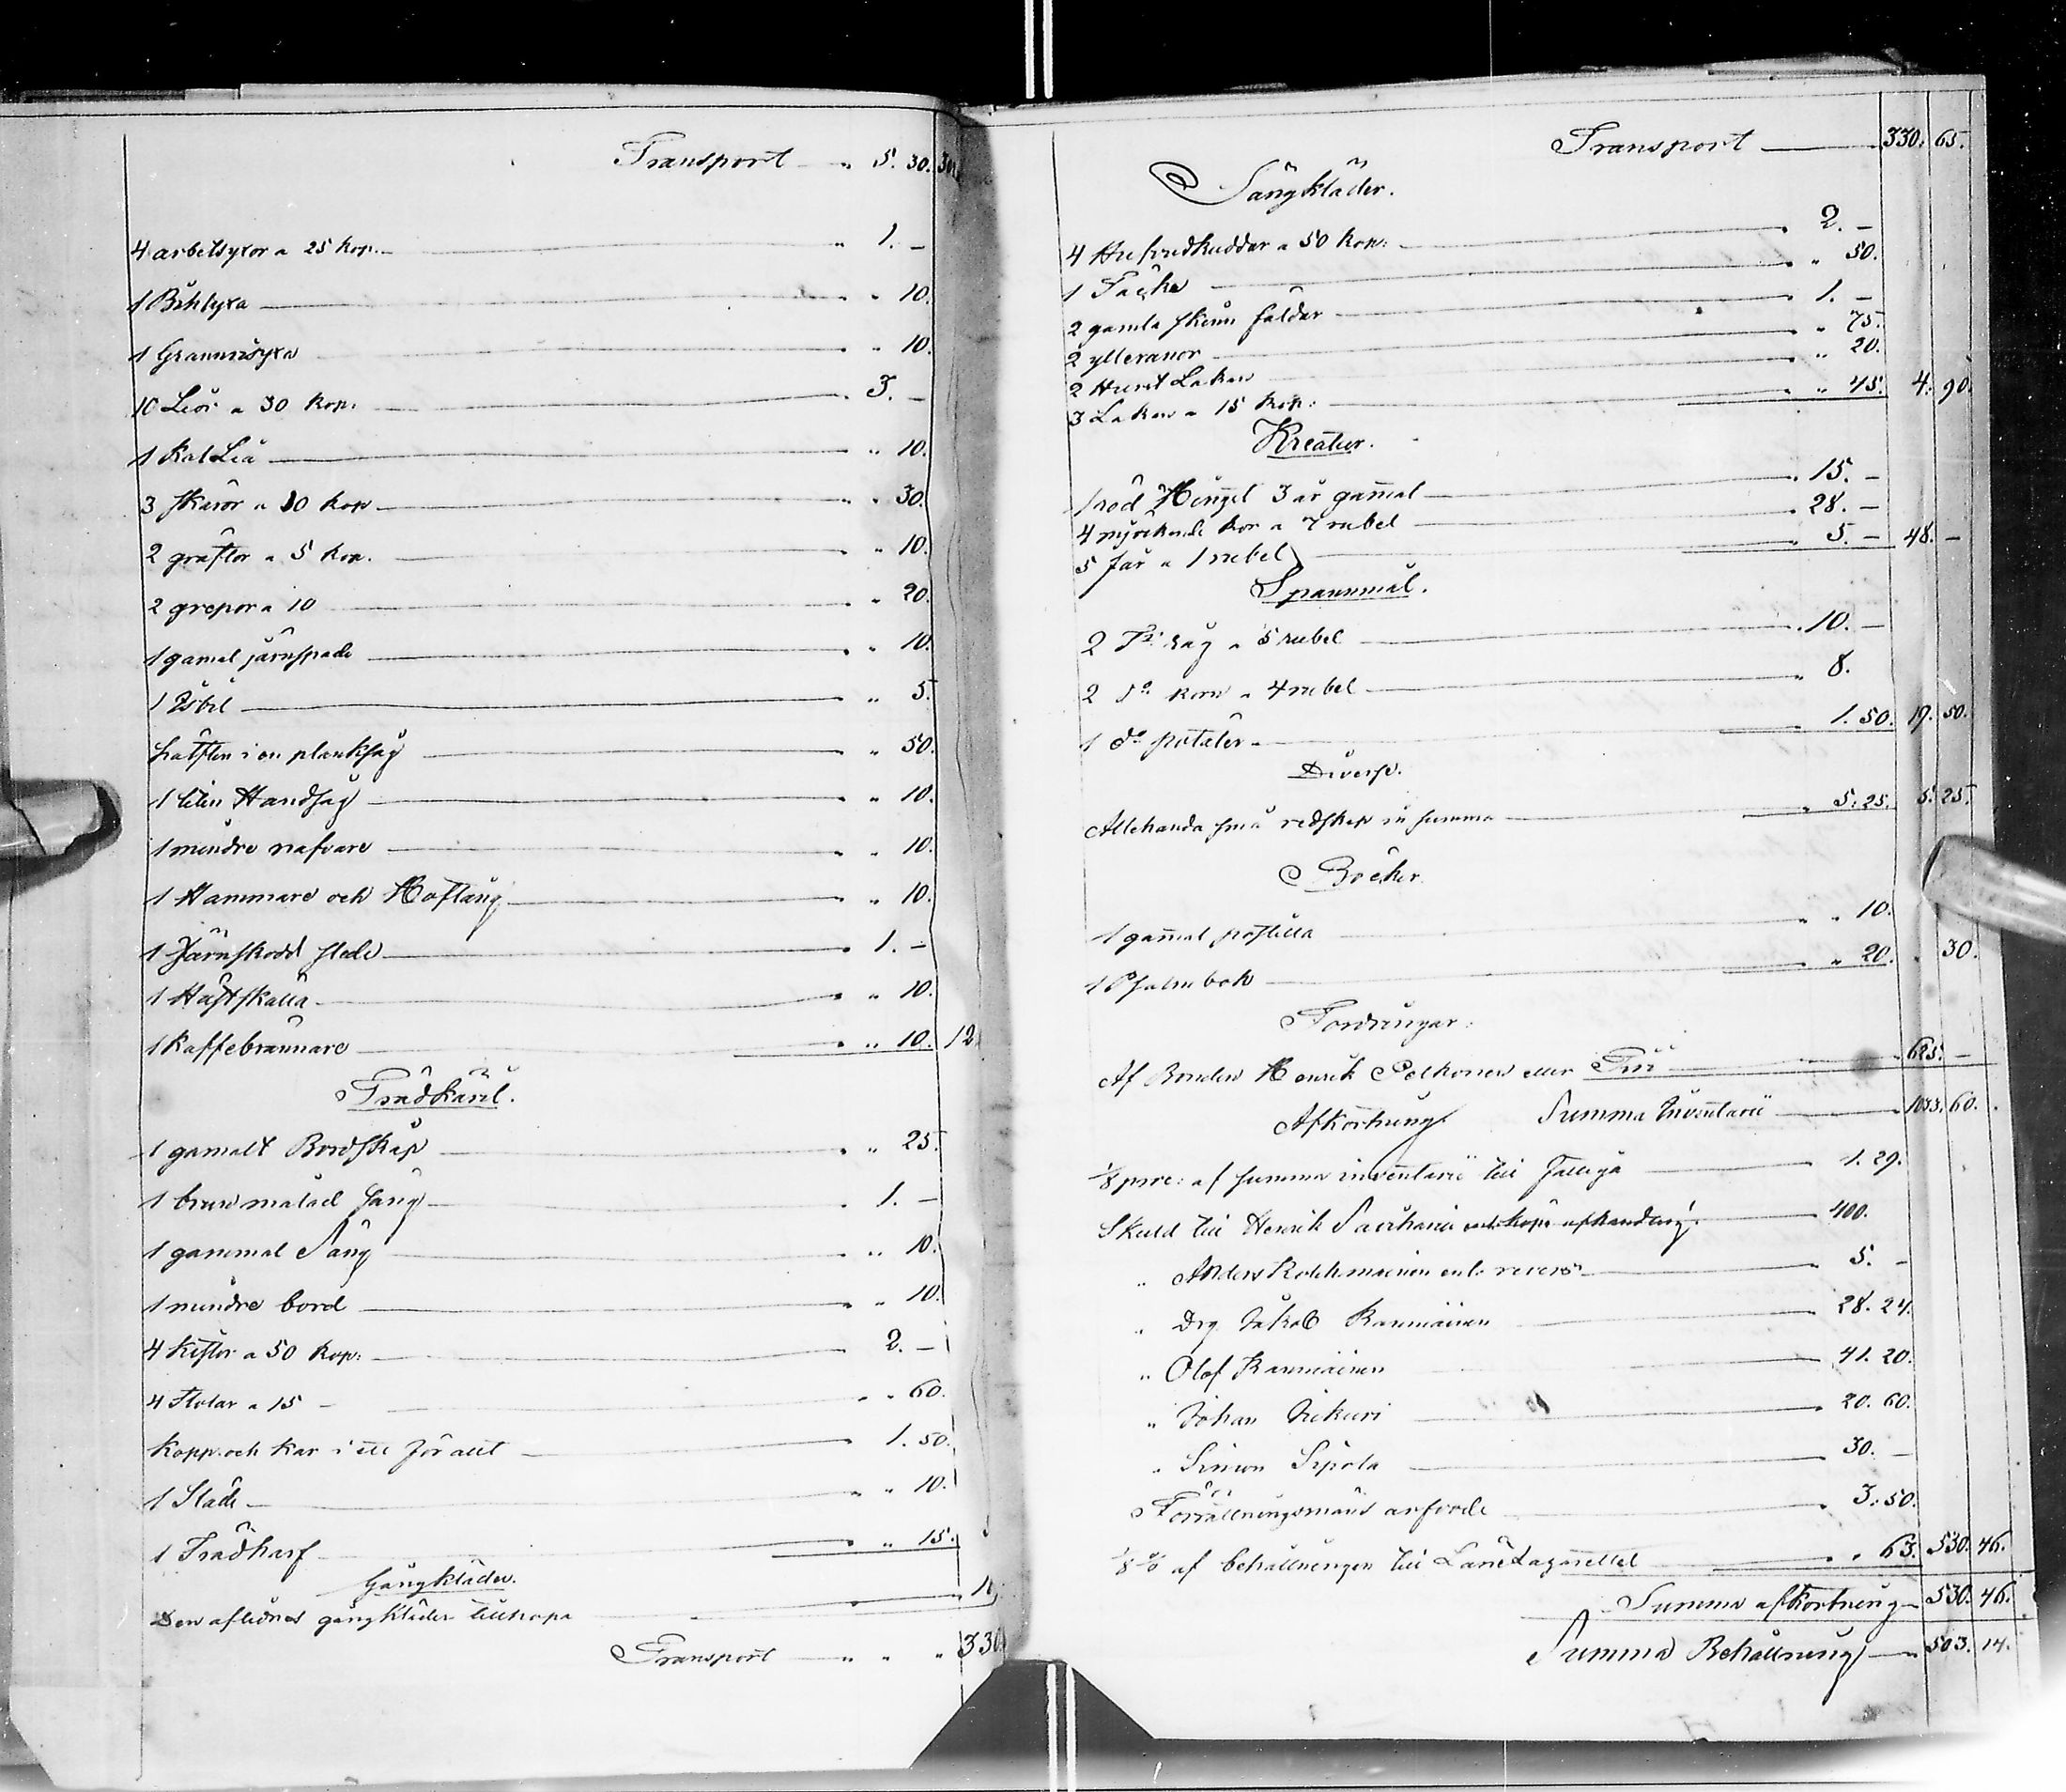 Transport — " 5. 30. 30
4 arbetsyxor a 25 kop. — " 1. —
1 Bihlyxa — " " 10.
1 Grannisyxa — " " 10.
10 Liör a 30 kop. — " 3. —
1 Kal Lia — " 10.
3 skäror a 10 kop — " " 30.
2 gräftor a 5 kop. — " 10.
2 grepor a 10 — " 20.
1 gamal järnspade — " " 10.
1 Isbil — " 5.
hälften i en planksåg — " 50.
1 liten Handsåg — " " 10.
1 mindre nafvare — " " 10.
1 Hammare och Hoftång — " " 10.
1 Järnskodd släde — 1. —
1 Hästskälla — " " 10.
1 Kaffebrännare — " " 10. 12
Trädkäril.
1 gamalt Bordskåp — " " 25.
1 brun målad säng — " 1. —
1 gammal Säng — " " 10.
1 mindre bord — " " 10.
4 Kistor a 50 kop: — 2. —
4 Stolar a 15 — " " 60.
Kopp och kar i ett för allt — 1. 50.
1 Släde — " " 10.
1 Trädharf — " " 15.
Gångkläder.
Den aflidnes gångkläder tillhopa — 1
Transport — " " " 330
Transport — 330. 65.
Sängkläder.
4 Hufvudkuddar a 50 kop: — 2. —
1 Täcke — " 50.
2 gamla skinn fäldar — 1. —
2 ylleranor — " 75.
2 Hurst Lakan — " 20.
3 Lakan a 15 kop: — " " 45. 4. 90.
Kreatur.
1 röd Hingst 3 år gammal — 15. —
4 mjölkande kor a 7 rubel — 28. —
5 får a 1 rubel — 5. — 48. —
Spannmål.
2 T:r råg a 5 rubel — 10. —
2 do korn a 4 rubel — " 8.
1 do potäter — 1. 50. 19. 50.
Diverse.
Allehanda små redskap in summa — " 5. 25. 5. 25.
Böcker.
1 gammal postilla — " " 10.
1 Psalmbok — " 20. " 30.
Fordringar:
Af Bonden Henrik Pelkonen eller — 625. —
Afkortning Summa Inventarii — 1033. 60.
1/8 proc: af summa inventarii till Fattiga — 1. 29.
Skuld till Henrik enl: köpe afhandling — 400.
" Anders enl: revers — 5. —
" Drg. Jakob Ranniainen — 28. 24.
" Olof Ranniainen — 41. 20.
" Johan — 20. 60.
" Simon Sipola — 30. —
Förrättningsmäns arfvode — " 3. 50.
1/8 % af behållningen till Länelazarettet — " " 63. 530. 46.
Summa afkortning — 530. 46.
Summa Behållning — 503. 14.